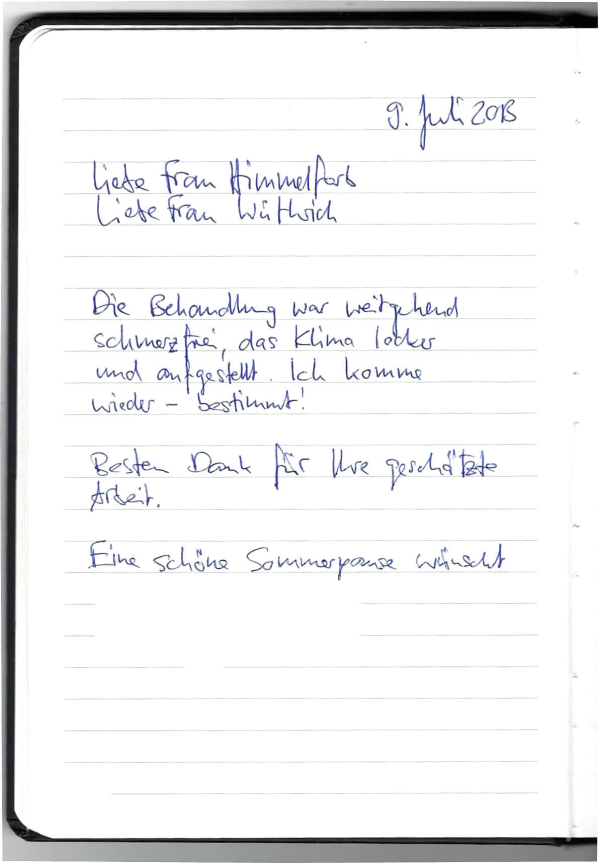 9. Juli 2013
Liebe Frau Himmelfarb
Liebe Frau Wüthrich
Die Behandlung war weitgehend
schmerzfrei, das Klima locker
und aufgestellt. Ich komme
wieder – bestimmt!
Besten Dank für Ihre geschätzte
Arbeit.
Eine schöne Sommerpause wünscht